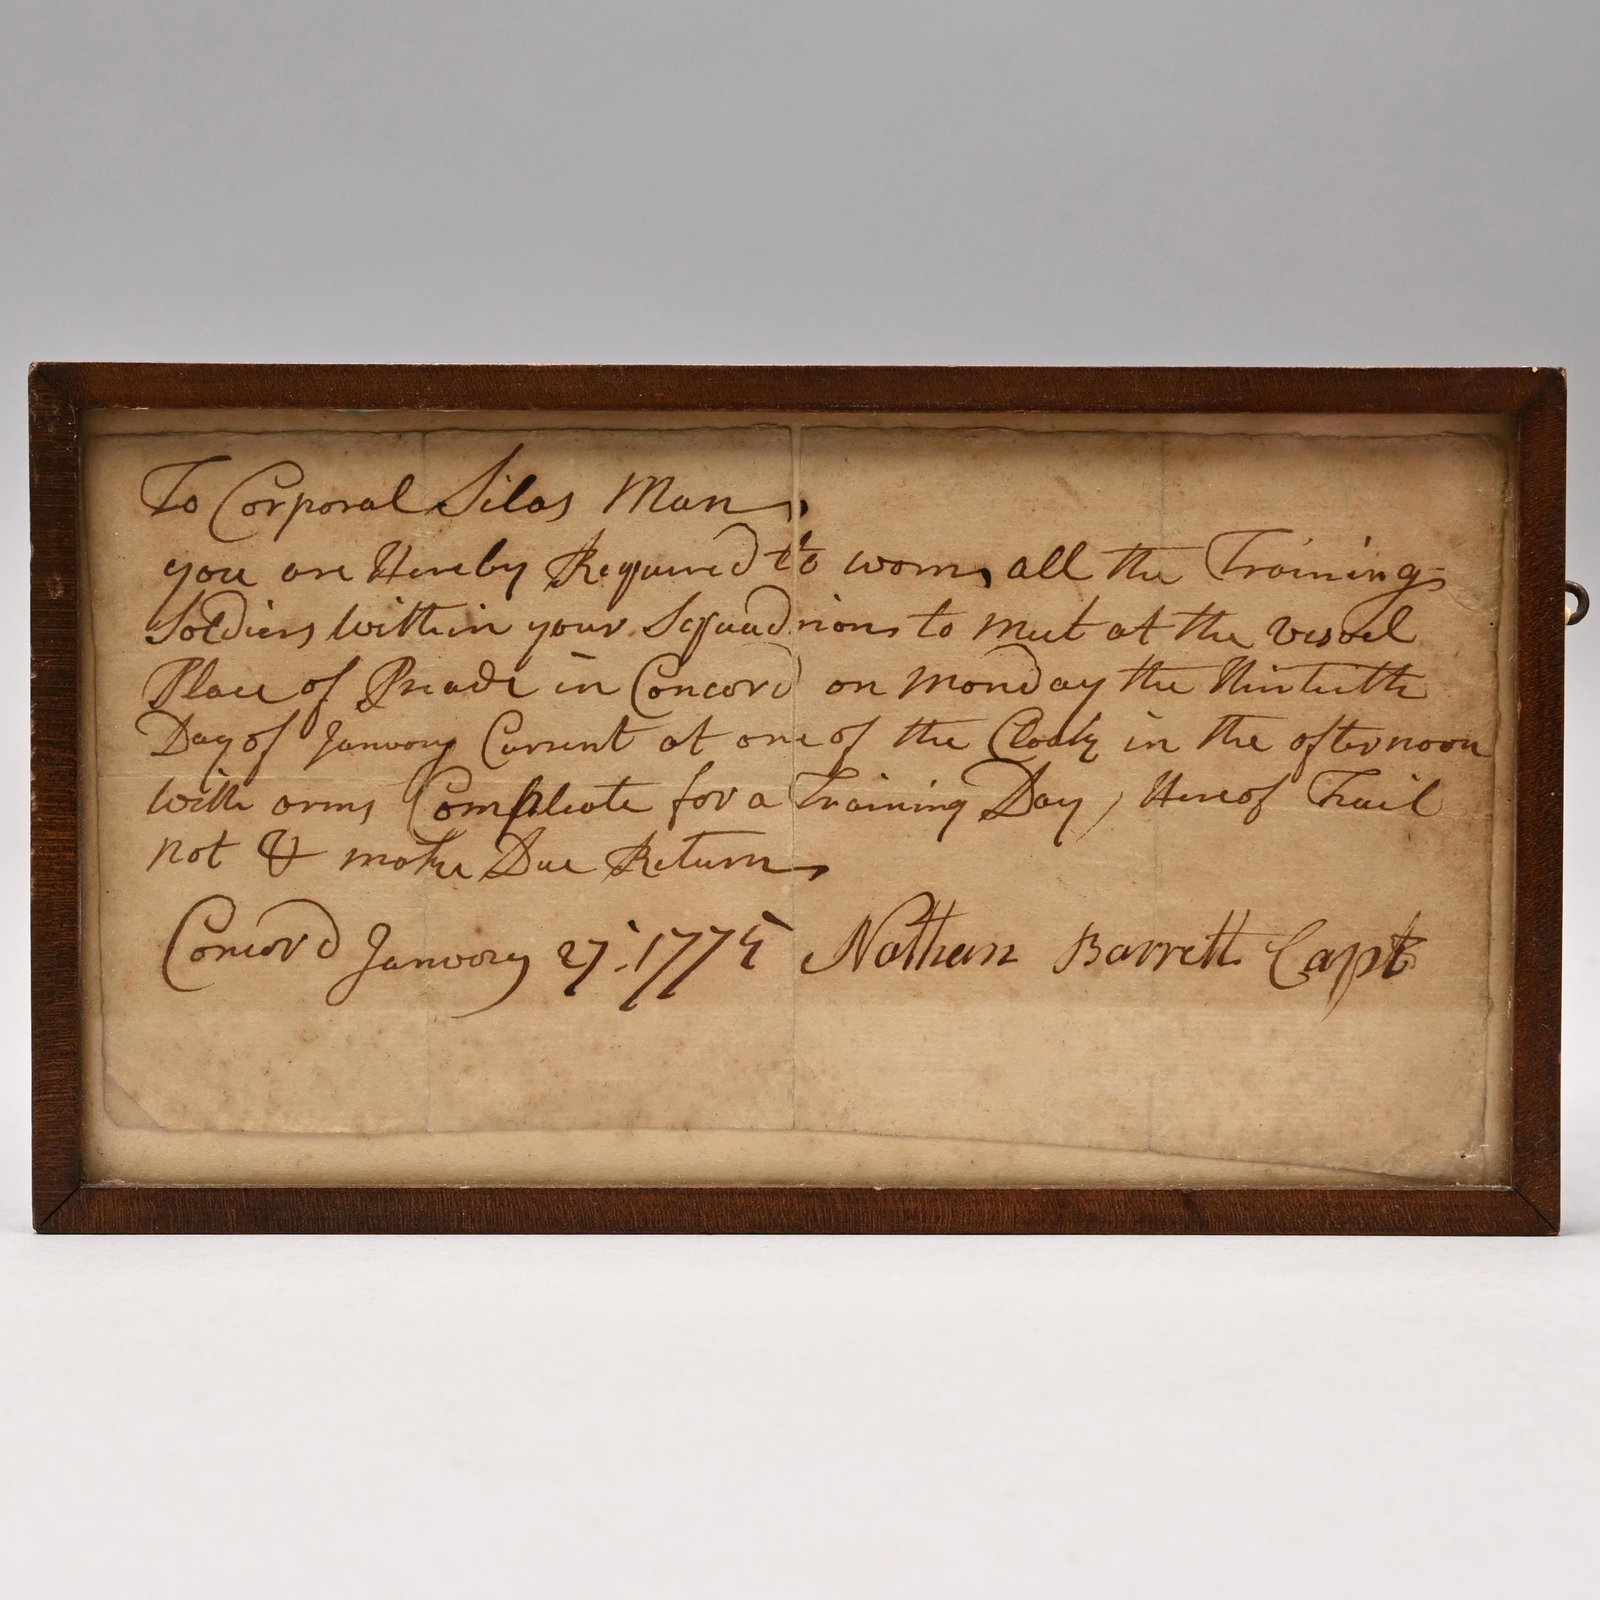 To Corporal Silas Man
you are Hereby Required to worn all the Training
Soldiers within your Squadrions to meet at the
Place of in Concord on monday the
Day of January Current at one of the Clock in the afternoon
with arms Compleate for a Training Day, Hereof Frail
not & make Due Return
Concord January 27. 1775 Nathan Barrett Capt